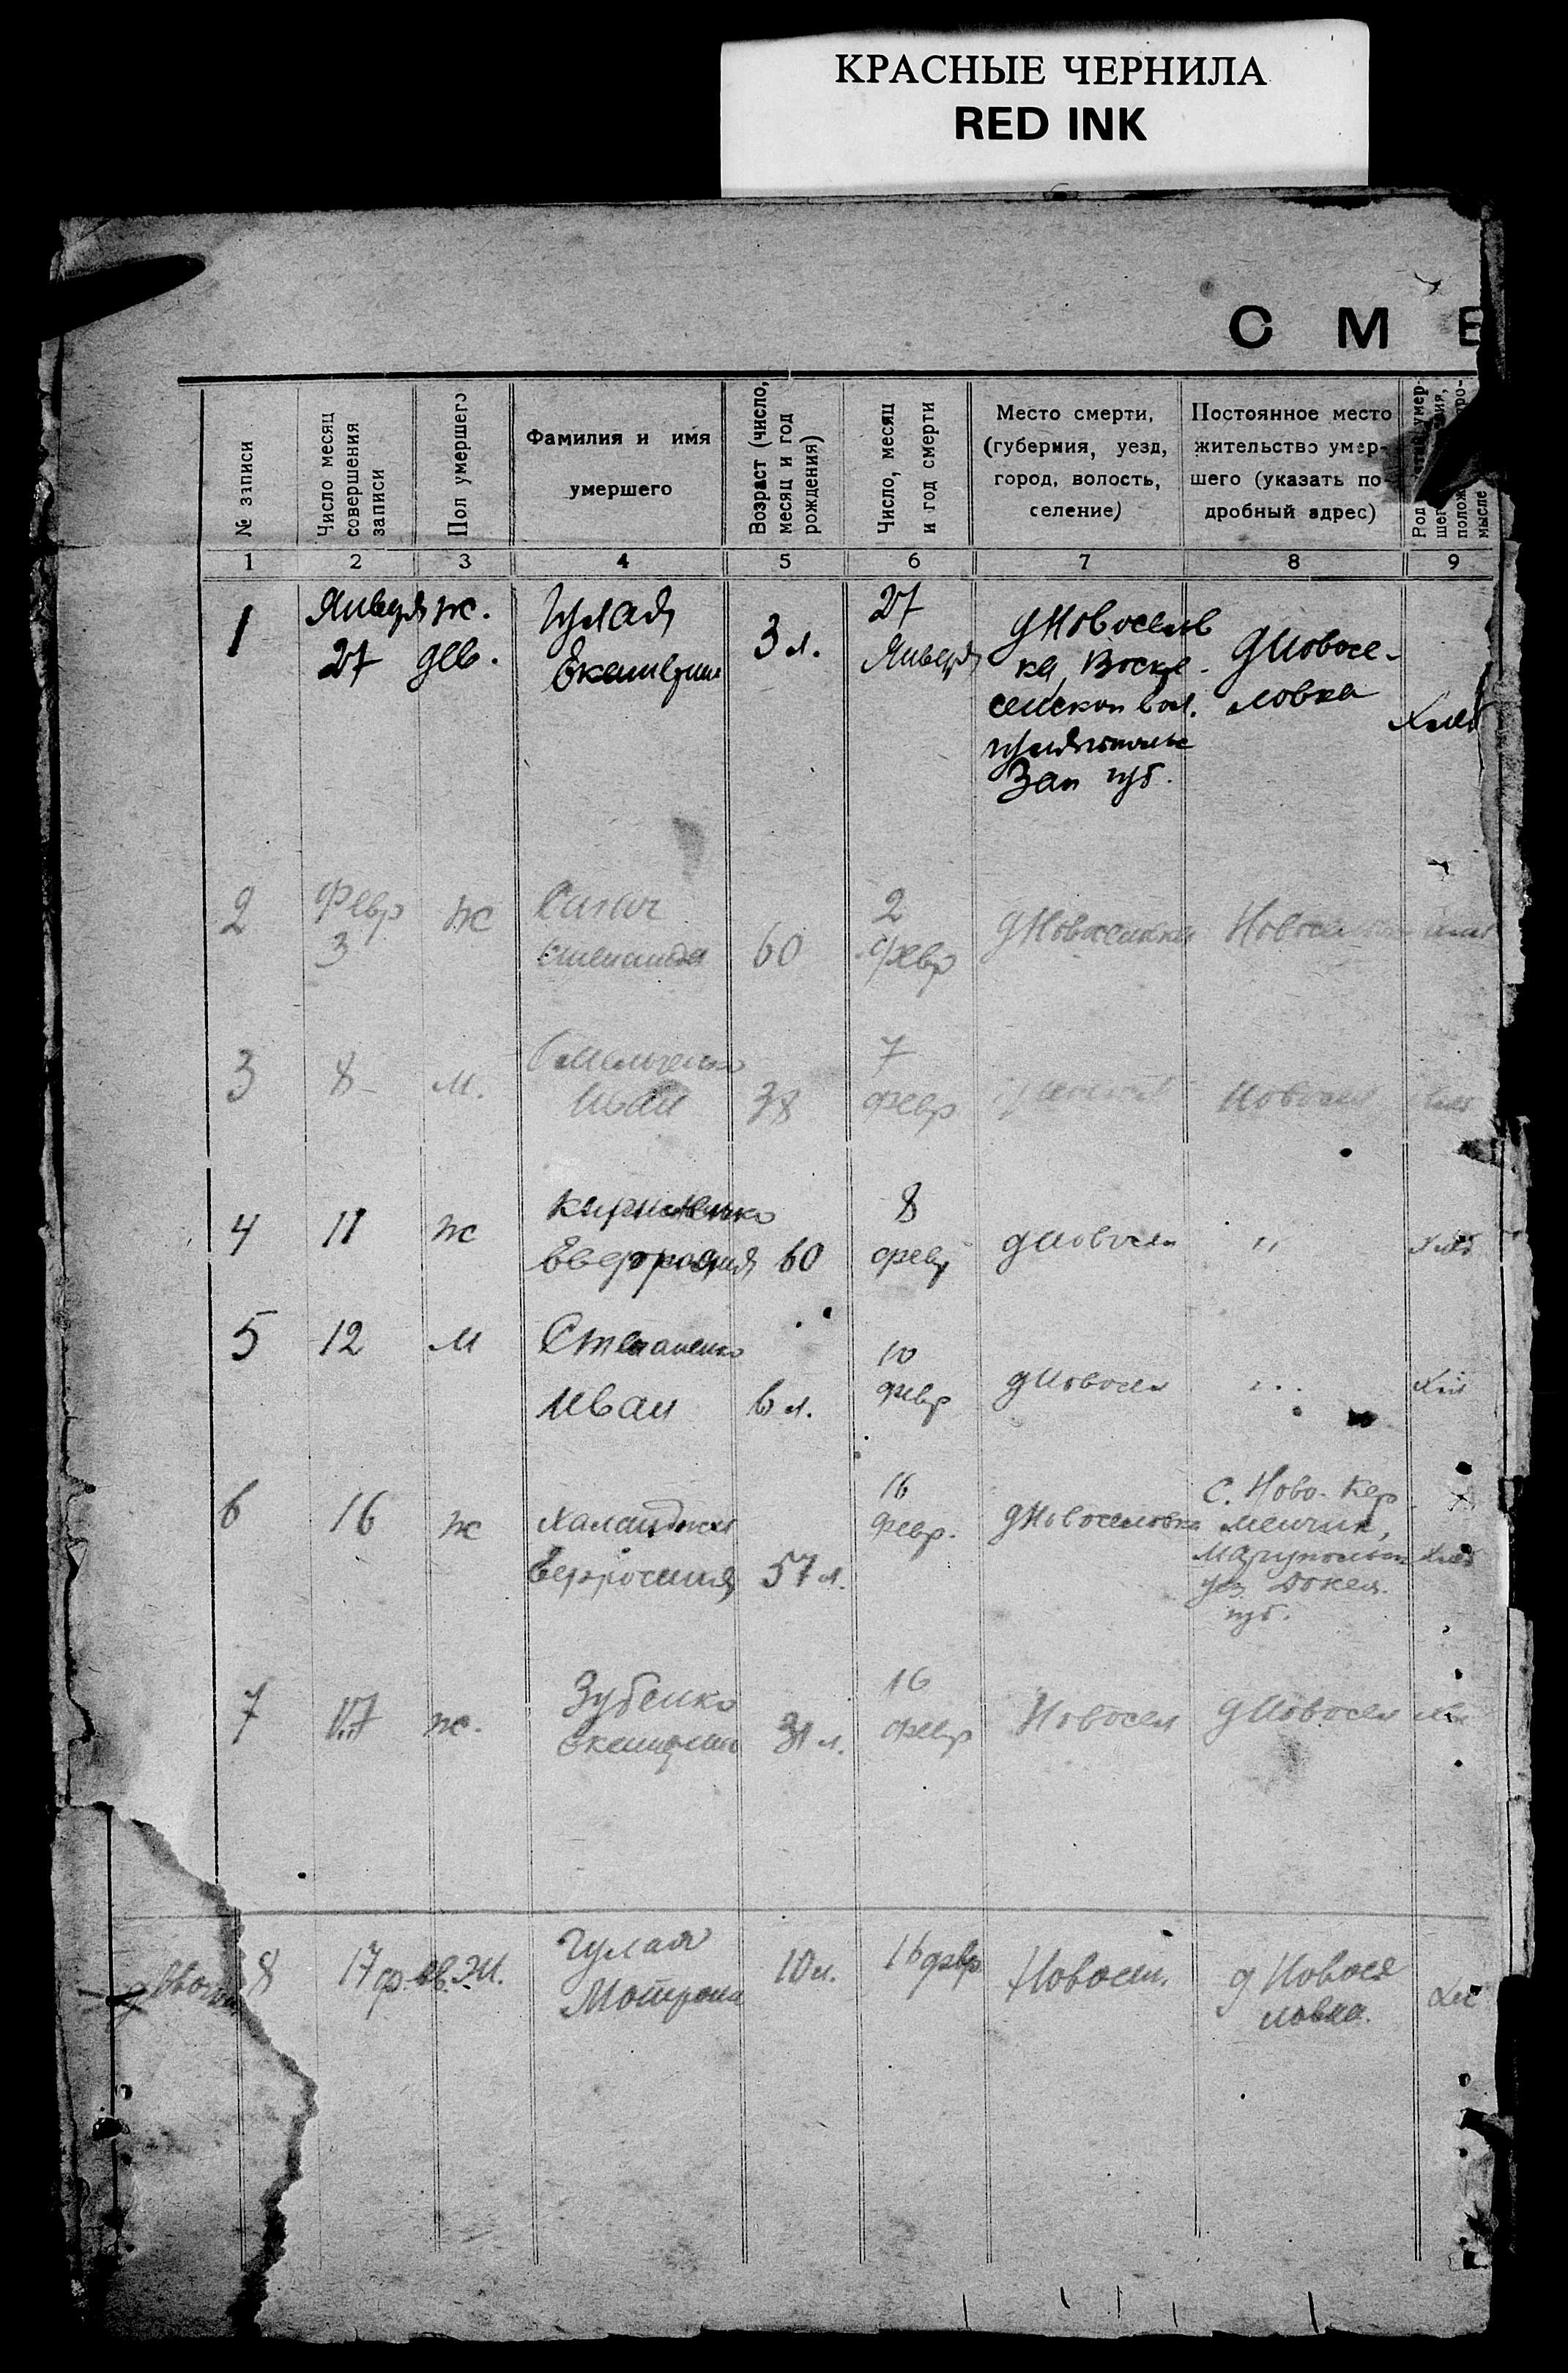 КРАСНЫЕ ЧЕРНИЛА
RED INK
С М Е
№ записи
Число месяц
совершения
записи
Пол умершего
Фамилия и имя
умершего
Возраст (число,
месяц и год
рождения)
Число, месяц
и год смерти
Место смерти,
(губерния, уезд,
город, волость,
селение)
Постоянное место
жительство умер-
шего (указать по-
дробный адрес)
Род
1 2 3 4 5 6 7 8 9
1
Января
27
ж.
дев.
Гулая
Екатерина
3 л.
27
Января
д Новоселов
ка, Воскре
сенской вол.
Зап губ.
д Новосе-
ловка
Хлеб
2
Февр
3
ж
60
2
февр
д Новоселовка
3
8
м.
Иван
38
7
февр
Новосел
4
11
ж
Кириченко
60
8
февр
д Новосел
"
Хлеб
5
12
м
Степаненко
Иван
6 л.
10
февр
д Новосел
"
Хлеб
6
16
ж
Халанджи
Евфросиния
57 л.
16
февр.
д Новоселовка
с. Ново-Кер
менчик,
Мариупольск
уез. Донец.
губ.
Хлеб
7
17
ж.
Зубенко
Екатерина
31 л.
16
февр
Новосел
д Новосел
8
17 ф.
Ж.
Гулая
Мотрона
10 л.
16 февр
Новосел.
д Новосе
ловка.